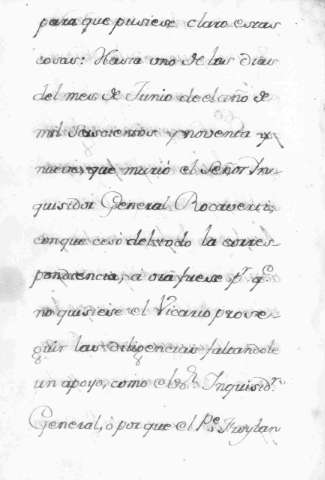 para que pusiese claro estas
cosas: Hasta uno de los dias
del mes de Junio de el año de
mil seiscientos y noventa y
nueve, que murió el Señor In-
quisidor General Rocaverti;
con que cesó del todo la corres-
pondencia, ó ora fuese pr. qe.
no quisiese el Vicario prose-
guir las diligencias faltandole
un apoyo, como el Inquisidr.
General, ò por que el Pe. Froylan